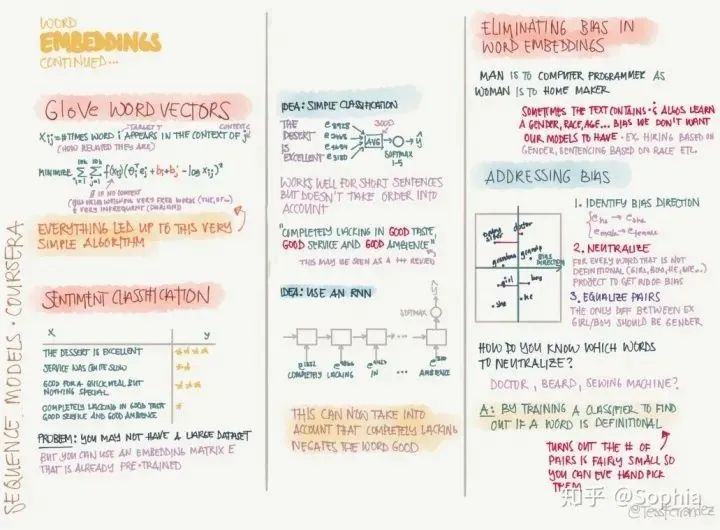 WORD
EMBEDDINGS
CONTINUED...
GloVe WORD VECTORS
Xij = #TIMES WORD i APPEARS IN THE CONTEXT OF j
TARGET
CONTEXT
(HOW RELATED THEY ARE)
MINIMIZE
EVERYTHING LED UP TO THIS VERY
SIMPLE ALGORITHM
SENTIMENT CLASSIFICATION
X Y
THE DESSERT IS EXCELLENT
SERVICE WAS QUITE SLOW
GOOD FOR A QUICK MEAL BUT
NOTHING SPECIAL
COMPLETELY LACKING IN GOOD TASTE
GOOD SERVICE AND GOOD AMBIENCE
PROBLEM: YOU MAY NOT HAVE A LARGE DATASET
BUT YOU CAN USE AN EMBEDDING MATRIX E
THAT IS ALREADY PRE-TRAINED
SEQUENCE MODELS · COURSERA
IDEA: SIMPLE CLASSIFICATION
THE
DESERT
IS
EXCELLENT
e8928
e3180
300D
AVG
ŷ
SOFTMAX
1-5
WORKS WELL FOR SHORT SENTENCES
BUT DOESN'T TAKE ORDER INTO
ACCOUNT
"COMPLETELY LACKING IN GOOD TASTE,
GOOD SERVICE AND GOOD AMBIENCE"
THIS MAY BE SEEN AS A +++ REVIEW
IDEA: USE AN RNN
SOFTMAX
COMPLETELY LACKING IN ... AMBIENCE
THIS CAN NOW TAKE INTO
ACCOUNT THAT COMPLETELY LACKING
NEGATES THE WORD GOOD
ELIMINATING BIAS IN
WORD EMBEDDINGS
MAN IS TO COMPUTER PROGRAMMER AS
WOMAN IS TO HOME MAKER
GENDER, RACE, AGE... BIAS WE DON'T WANT
OUR MODELS TO HAVE · EX. HIRING BASED ON
GENDER, SENTENCING BASED ON RACE ETC.
ADDRESSING BIAS
doctor
BIAS
DIRECTION
girl
boy
she
he
1. IDENTIFY BIAS DIRECTION
ehe → eshe
emale → efemale
2. NEUTRALIZE
FOR EVERY WORD THAT IS NOT
DEFINITIONAL (GIRL, BOY, HE, WE...)
PROJECT TO GET RID OF BIAS
3. EQUALIZE PAIRS
THE ONLY DIFF BETWEEN EX
GIRL/BOY SHOULD BE GENDER
HOW DO YOU KNOW WHICH WORDS
TO NEUTRALIZE?
DOCTOR, BEARD, SEWING MACHINE?
A: BY TRAINING A CLASSIFIER TO FIND
OUT IF A WORD IS DEFINITIONAL
TURNS OUT THE # OF
PAIRS IS FAIRLY SMALL SO
YOU CAN EVE HAND PICK
THEM
知乎 @Sophia
@TessFerrandez